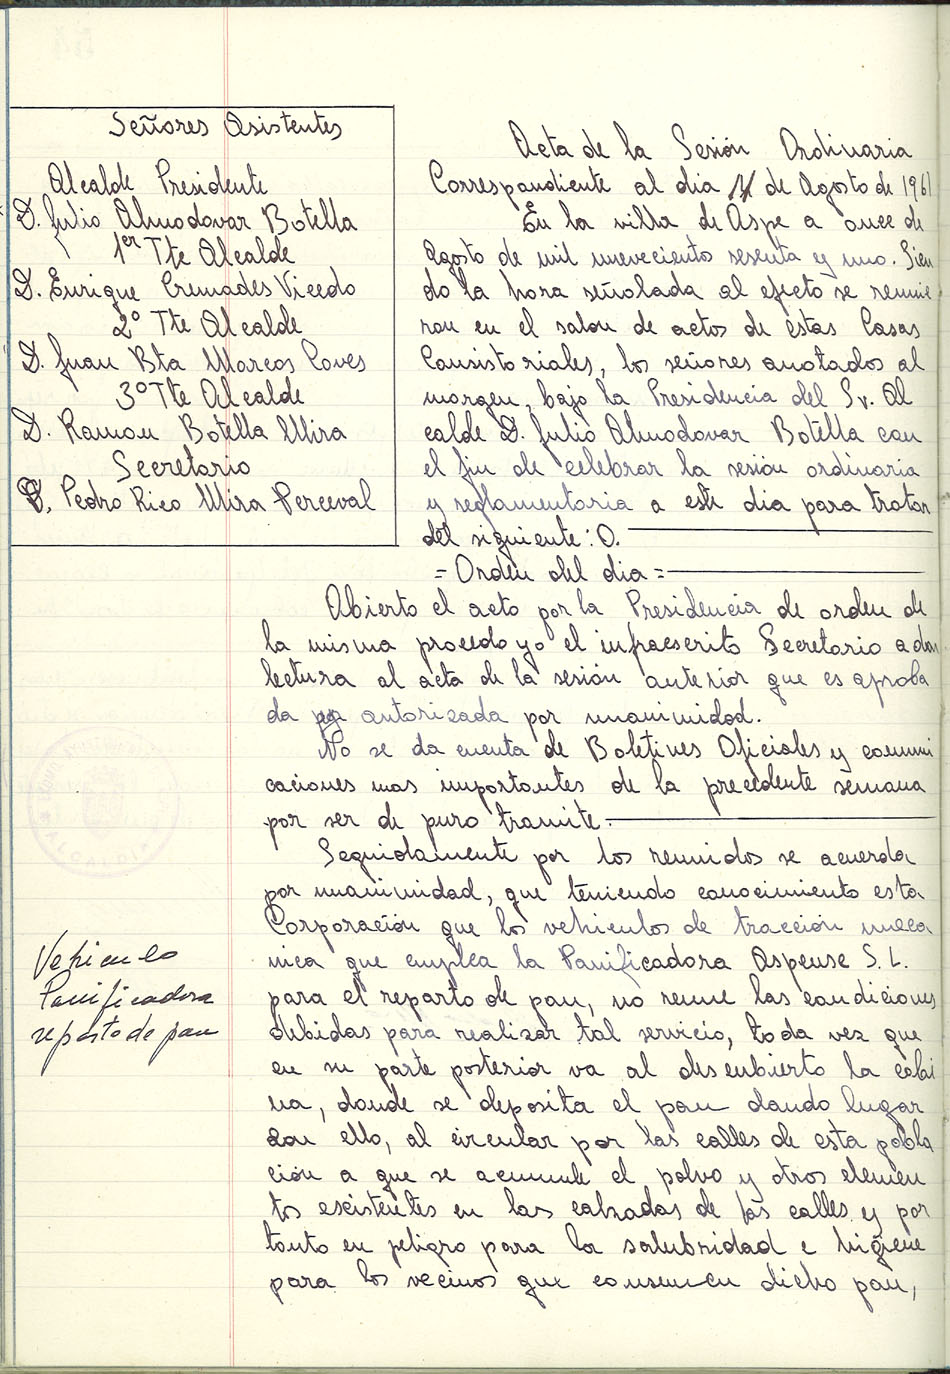 Señores Asistentes
Alcalde Presidente
D. Julio Almodovar Botella
1er Tte Alcalde
D. Enrique Cremades Vicedo
2º Tte Alcalde
D. Juan Bta Marcos Coves
3º Tte Alcalde
D. Ramon Botella Mira
Secretario
D. Pedro Rico Mira Perceval
Acta de la Sesión Ordinaria
Correspondiente al dia 11 de Agosto de 1961
En la villa de Aspe a once de
Agosto de mil novecientos sesenta y uno. Sien
do la hora señalada al efecto se reunie
ron en el salon de actos de éstas Casas
Consistoriales, los señores anotados al
margen, bajo la Presidencia del Sr. Al
calde D. Julio Almodovar Botella con
el fin de celebrar la sesión ordinaria
y reglamentaria a este dia para tratar
del siguiente: O.
= Orden del dia =
Abierto el acto por la Presidencia de orden de
la misma procedo yo el infraescrito Secretario a dar
lectura al acta de la sesión anterior que es aproba
da autorizada por unanimidad.
No se da cuenta de Boletines Oficiales y comuni
caciones mas importantes de la precedente semana
por ser de puro tramite.
Seguidamente por los reunidos se acuerda
por unanimidad, que teniendo conocimiento esta
Corporación que los vehiculos de tracción meca
nica que emplea la Panificadora Aspense S. L.
para el reparto de pan, no reune las condiciones
debidas para realizar tal servicio, toda vez que
en su parte posterior va al descubierto la cabi
na, donde se deposita el pan dando lugar
con ello, al circular por las calles de esta pobla
ción a que se acumule el polvo y otros elemen
tos existentes en las calzadas de las calles y por
tanto en peligro para la salubridad e higiene
para los vecinos que consumen dicho pan,
Vehiculo
Panificadora
reparto de pan
ALCALDIA